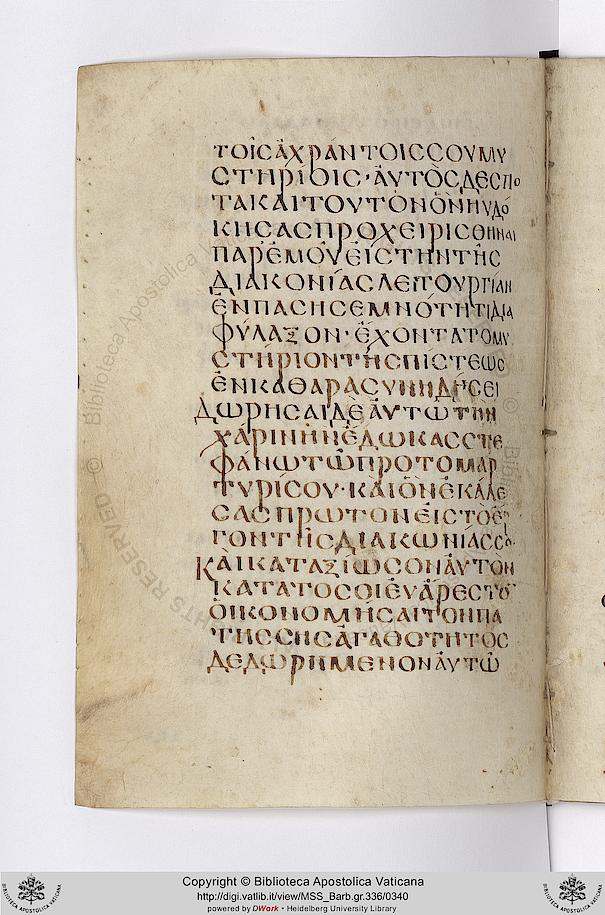 ΤΟΙϹΑΧΡΑΝΤΟΙϹϹΟΥΜΥ
ϹΤΗΡΙΟΙϹ·ΑΥΤΟϹΔΕϹΠΟ
ΤΑΚΑΙΤΟΥΤΟΝΟΝΗΥΔΟ
ΚΗϹΑϹΠΡΟΧΕΙΡΙϹΘΗΝΑΙ
ΠΑΡΕΜΟΥΕΙϹΤΗΝΤΗϹ
ΔΙΑΚΟΝΙΑϹΛΕΙΤΟΥΡΓΙΑΝ
ΕΝΠΑϹΗϹΕΜΝΟΤΗΤΙΔΙΑ
ΦΥΛΑΞΟΝ·ΕΧΟΝΤΑΤΟΜΥ
ϹΤΗΡΙΟΝΤΗϹΠΙϹΤΕΩϹ
ΕΝΚΑΘΑΡΑϹΥΝΗΔΗϹΕΙ
ΔΩΡΗϹΑΙΔΕΑΥΤΩΤΗΝ
ΧΑΡΙΝΗΝΕΔΩΚΑϹϹΤΕ
ΦΑΝΩΤΩΠΡΟΤΟΜΑΡ
ΤΥΡΙϹΟΥ·ΚΑΙΟΝΕΚΑΛΕ
ϹΑϹΠΡΩΤΟΝΕΙϹΤΟΕΡ
ΓΟΝΤΗϹΔΙΑΚΩΝΙΑϹϹΟΥ
ΚΑΙΚΑΤΑΞΙΩϹΟΝΑΥΤΟΝ
ΚΑΤΑΤΟϹΟΙΕΥΑΡΕϹΤΟ
ΟΙΚΟΝΟΜΗϹΑΙΤΟΝΠΑ
ΤΗϹϹΗϹΑΓΑΘΟΤΗΤΟϹ
ΔΕΔΩΡΗΜΕΝΟΝΑΥΤΩ
Copyright © Biblioteca Apostolica Vaticana
http://digi.vatlib.it/view/MSS_Barb.gr.336/0340
powered by DWork - Heidelberg University Library